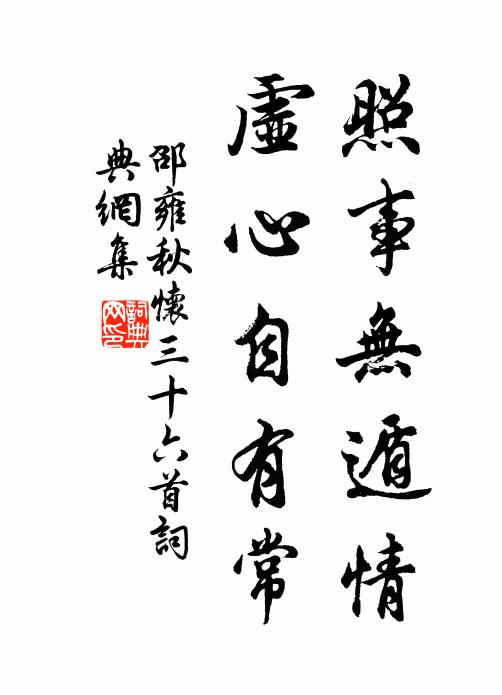 照事無遁情
虛心自有常
邵雍秋懷三十六首詞
典網集
詞典網印